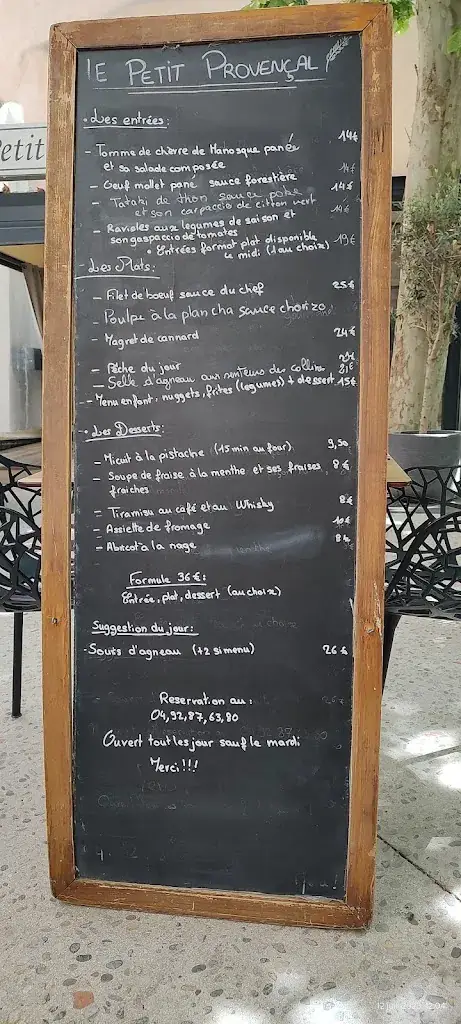 Petit
lE PETIT PROVENÇAL
• Les entrées:
- Tomme de chèvre de Manosque panée 14€
et sa salade composée
- Oeuf mollet pané sauce forestière 14€
- Tataki de thon sauce poke 14€
et son carpaccio de citron vert
- Ravioles aux legumes de saison et 14€
son gaspaccio de tomates
• Entrées format plat disponible 19€
le midi (1 au choix)
- Les Plats:
- Filet de bœuf sauce du chef 25€
- Poulpe à la plancha sauce chorizo
- Magret de cannard 24€
- Pêche du jour
- Selle d'agneau aux senteurs des collines 21€
- Menu enfant: nuggets, frites (legumes) + dessert 15€
• Les Desserts:
- Micuit à la pistache (15 min au four) 9,50
- Soupe de fraise à la menthe et ses fraises 8€
fraiches
- Tiramisu au café et au Whisky 8€
- Assiette de fromage 10€
- Abricot à la nage 8€
Formule 36€:
Entrée, plat, dessert (au choix)
Suggestion du jour:
- Souris d'agneau (+2 si menu) 26€
Reservation au:
04,92,87,63,80
Ouvert tout les jour sauf le mardi
Merci!!!